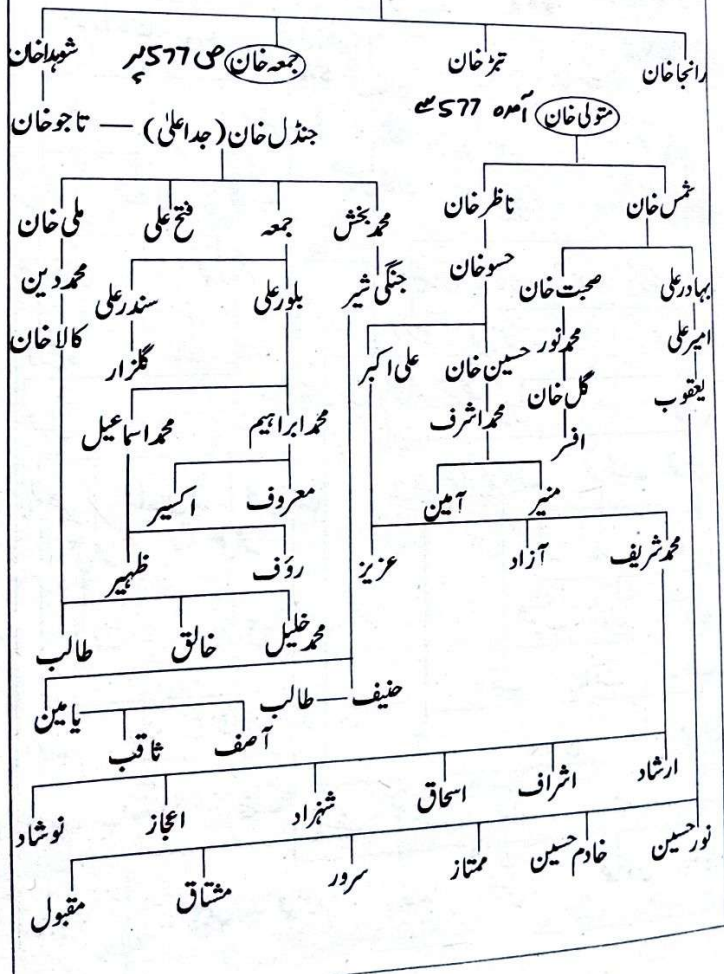 رانجاخان تبڑخان جمعہ خان ص 577 پر شوہداخان
متولی خان آمدہ 577 سے
جنڈل خان (جداعلیٰ) — تاجوخان
شمس خان ناظرخان محمدبخش جمعہ فتح علی ملی خان
بہادرعلی صحبت خان حسوخان جنگی شیر بلورعلی سندرعلی محمددین
امیرعلی محمدنور حسین خان علی اکبر گلزار کالاخان
یعقوب گل خان محمداشرف محمدابراہیم محمداسماعیل
افسر منیر آمین معروف اکسیر
محمدشریف آزاد عزیز رؤف ظہیر
محمدخلیل خالق طالب
حنیف — طالب یامین
آصف ثاقب
ارشاد اشراف اسحاق شہزاد اعجاز نوشاد
نورحسین خادم حسین ممتاز سرور مشتاق مقبول